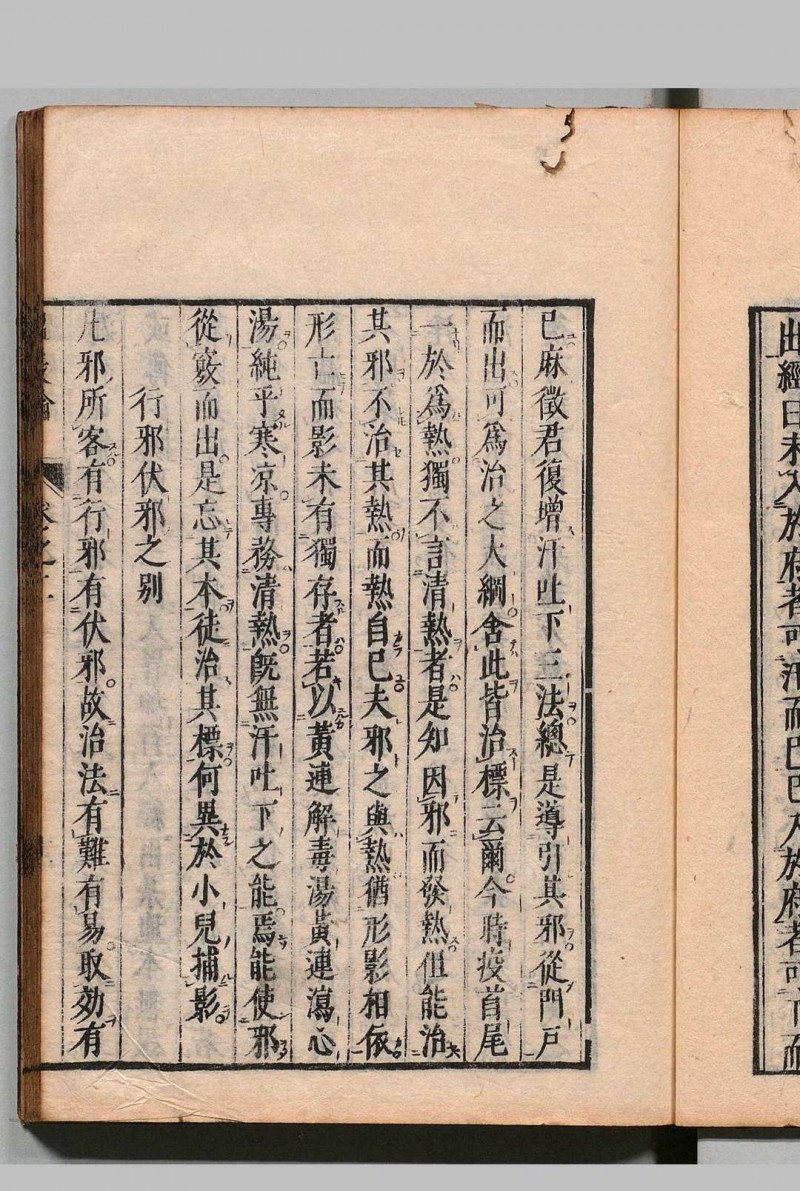 出經曰未入於府者可汗而已已入於府者可下而
已麻徵君復增汗吐下三法總是導引其邪從門戶
而出可爲治之大綱舍此皆治標云爾今時疫首尾
一於爲熱獨不言清熱者是知因邪而發熱但能治
其邪不治其熱而熱自已夫邪之與熱猶形影相依
形亡而影未有獨存者若以黃連解毒湯黃連瀉心
湯純乎寒凉專務清熱旣無汗吐下之能焉能使邪
從竅而出是忘其本徒治其標何異於小兒捕影
行邪伏邪之別
凡邪所客有行邪有伏邪故治法有難有易取効有